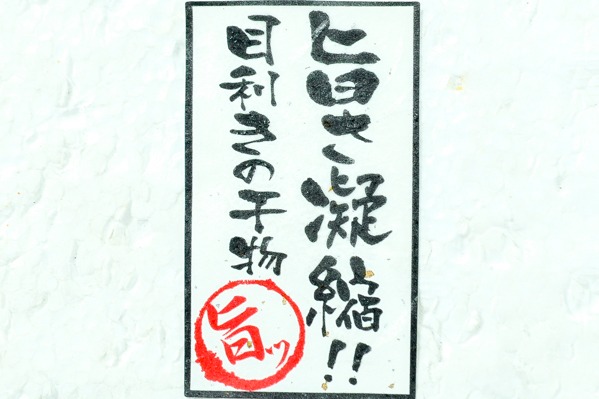 旨さ凝縮!!
目利きの干物
旨ッ